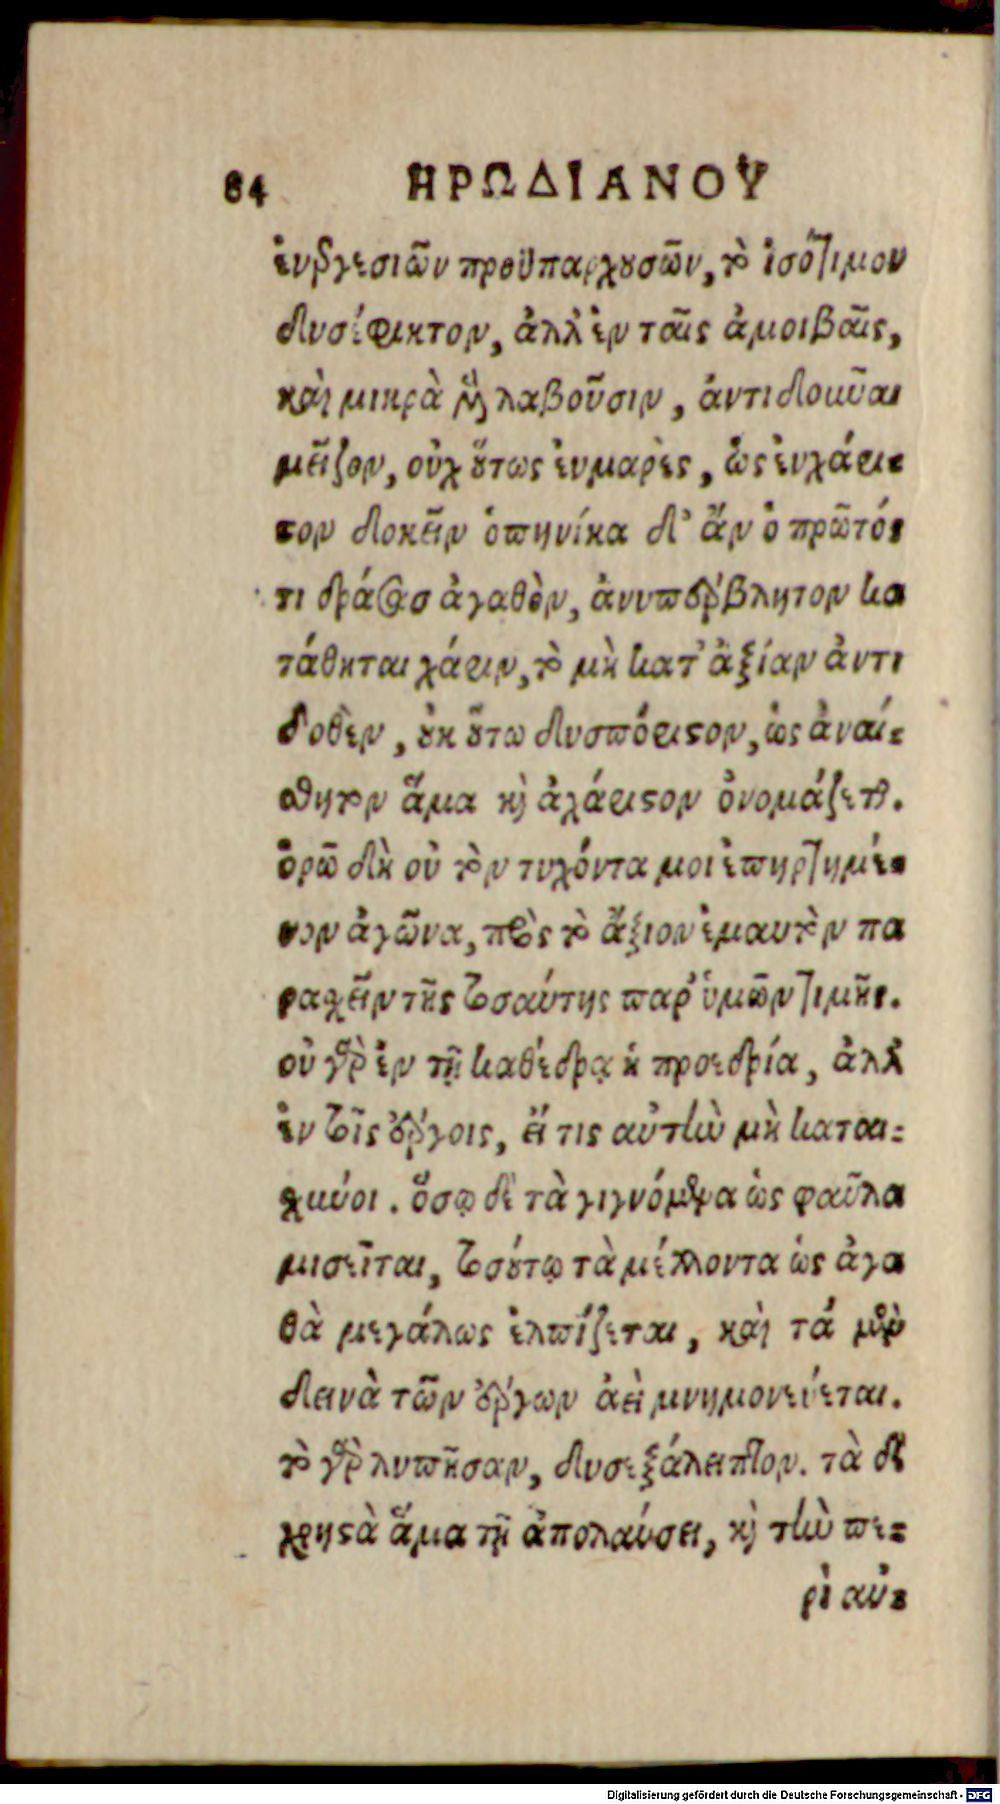 84 ΗΡΩΔΙΑΝΟΥ
ἐυεργεσιῶν προϋπαρχουσῶν, τὸ ἰσότιμον
δυσέφικτον, ἀλλ' ἐν ταῖς ἀμοιβαῖς,
καὶ μικρὰ μὲν λαβοῦσιν, ἀντιδοῦναι
μεῖζον, οὐχ οὕτως ἐυμαρὲς, ὡς ἐυχάρι-
στον δοκεῖν ὁπηνίκα δ' ἂν ὁ πρῶτός
τι δράσας ἀγαθὸν, ἀνυπέρβλητον κα
τάθηται χάριν, τὸ μὴ κατ' ἀξίαν ἀντι
δοθὲν, οὐκ οὕτω δυσπόριστον, ὡς ἀναί-
σθητον ἅμα καὶ ἀχάριστον ὀνομάζεται.
ὁρῶ δὴ οὐ τὸν τυχόντα μοι ἐπηρτημέ-
νον ἀγῶνα, πρὸς τὸ ἄξιον ἐμαυτὸν πα
ρασχεῖν τῆς τοσαύτης παρ' ὑμῶν τιμῆς.
οὐ γὰρ ἐν τῇ καθέδρᾳ ἡ προεδρία, ἀλλ'
ἐν τοῖς ἔργοις, εἴ τις αὐτὴν μὴ καται-
σχύνοι. ὅσῳ δὲ τὰ γιγνόμενα ὡς φαῦλα
μισεῖται, τοσούτῳ τὰ μέλλοντα ὡς ἀγα
θὰ μεγάλως ἐλπίζεται, καὶ τά μὲν
δεινὰ τῶν ἔργων ἀεὶ μνημονεύεται.
τὸ γὰρ λυπῆσαν, δυσεξάλειπτον. τὰ δὲ
χρηστὰ ἅμα τῇ ἀπολαύσει, καὶ τὴν πε-
ρὶ αὐ-
Digitalisierung gefördert durch die Deutsche Forschungsgemeinschaft - DFG